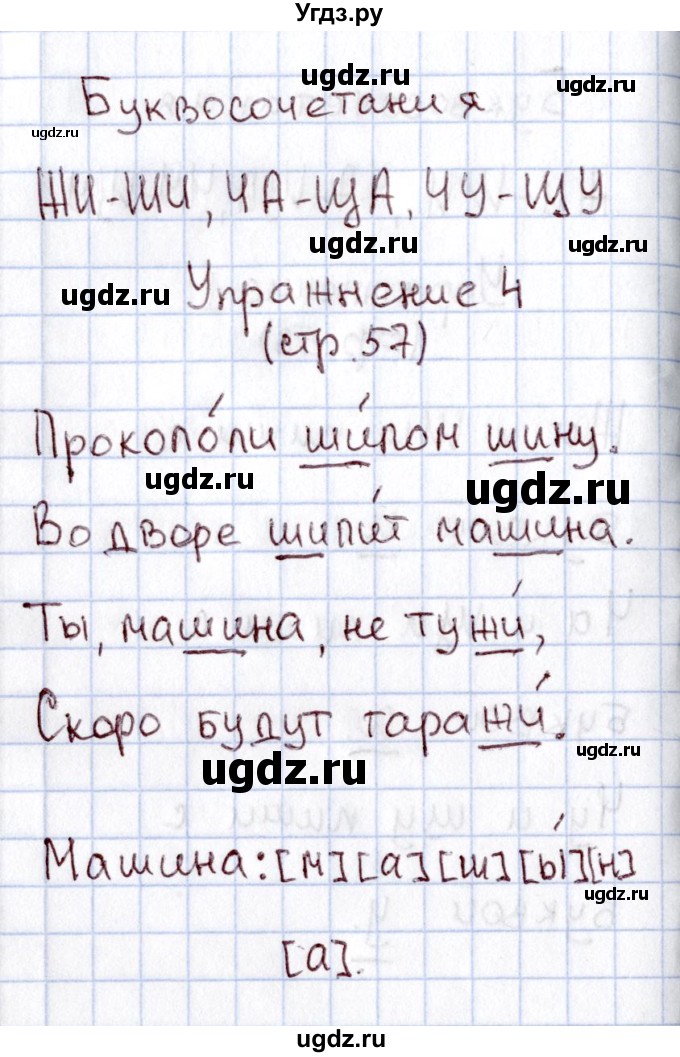 Угдз.ру
ugdz.ru
Буквосочетания
ugdz.ru
ЖИ-ШИ, ЧА-ЩА, ЧУ-ЩУ
ugdz.ru
ugdz.ru
ugdz.ru
Упражнение 4
(стр. 57)
Проколо́ли ши́пом шину.
ugdz.ru
ugdz.ru
Во дворе шипи́т машина.
Ты, машина, не тужи́,
Скоро будут таражи́.
ugdz.ru
ugdz.ru
Машина: [м] [а] [ш] [ы́] [н]
[а].
ugdz.ru